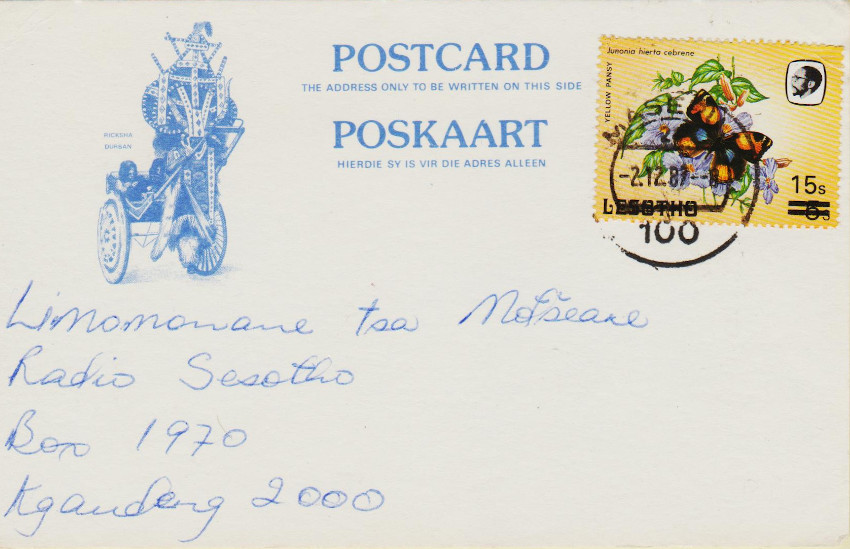 POSTCARD
THE ADDRESS ONLY TO BE WRITTEN ON THIS SIDE
POSKAART
HIERDIE SY IS VIR DIE ADRES ALLEEN
RICKSHA
DURBAN
Junonia hierta cebrene
YELLOW PANSY
15s
LESOTHO
MASE
-2.12.87
100
Limomonane tsa Motšeare
Radio Sesotho
Box 1970
Kgaudeng 2000